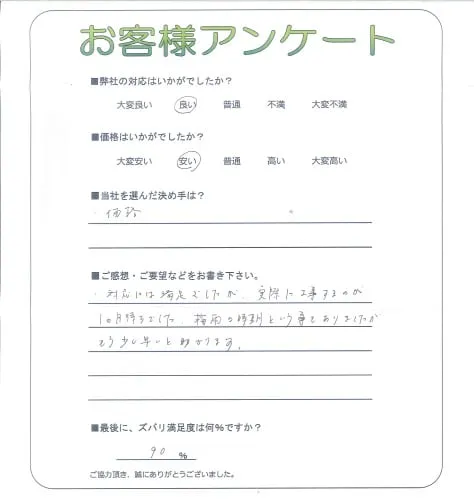 お客様アンケート
■弊社の対応はいかがでしたか？
大変良い 良い 普通 不満 大変不満
■価格はいかがでしたか？
大変安い 安い 普通 高い 大変高い
■当社を選んだ決め手は？
・価格
■ご感想・ご要望などをお書き下さい。
・対応には満足でしたが、実際に工事するのが
1ヶ月待ちでした、梅雨の時期という事もありましたが
もう少し早いと助かります。
■最後に、ズバリ満足度は何%ですか？
90 %
ご協力頂き、誠にありがとうございました。